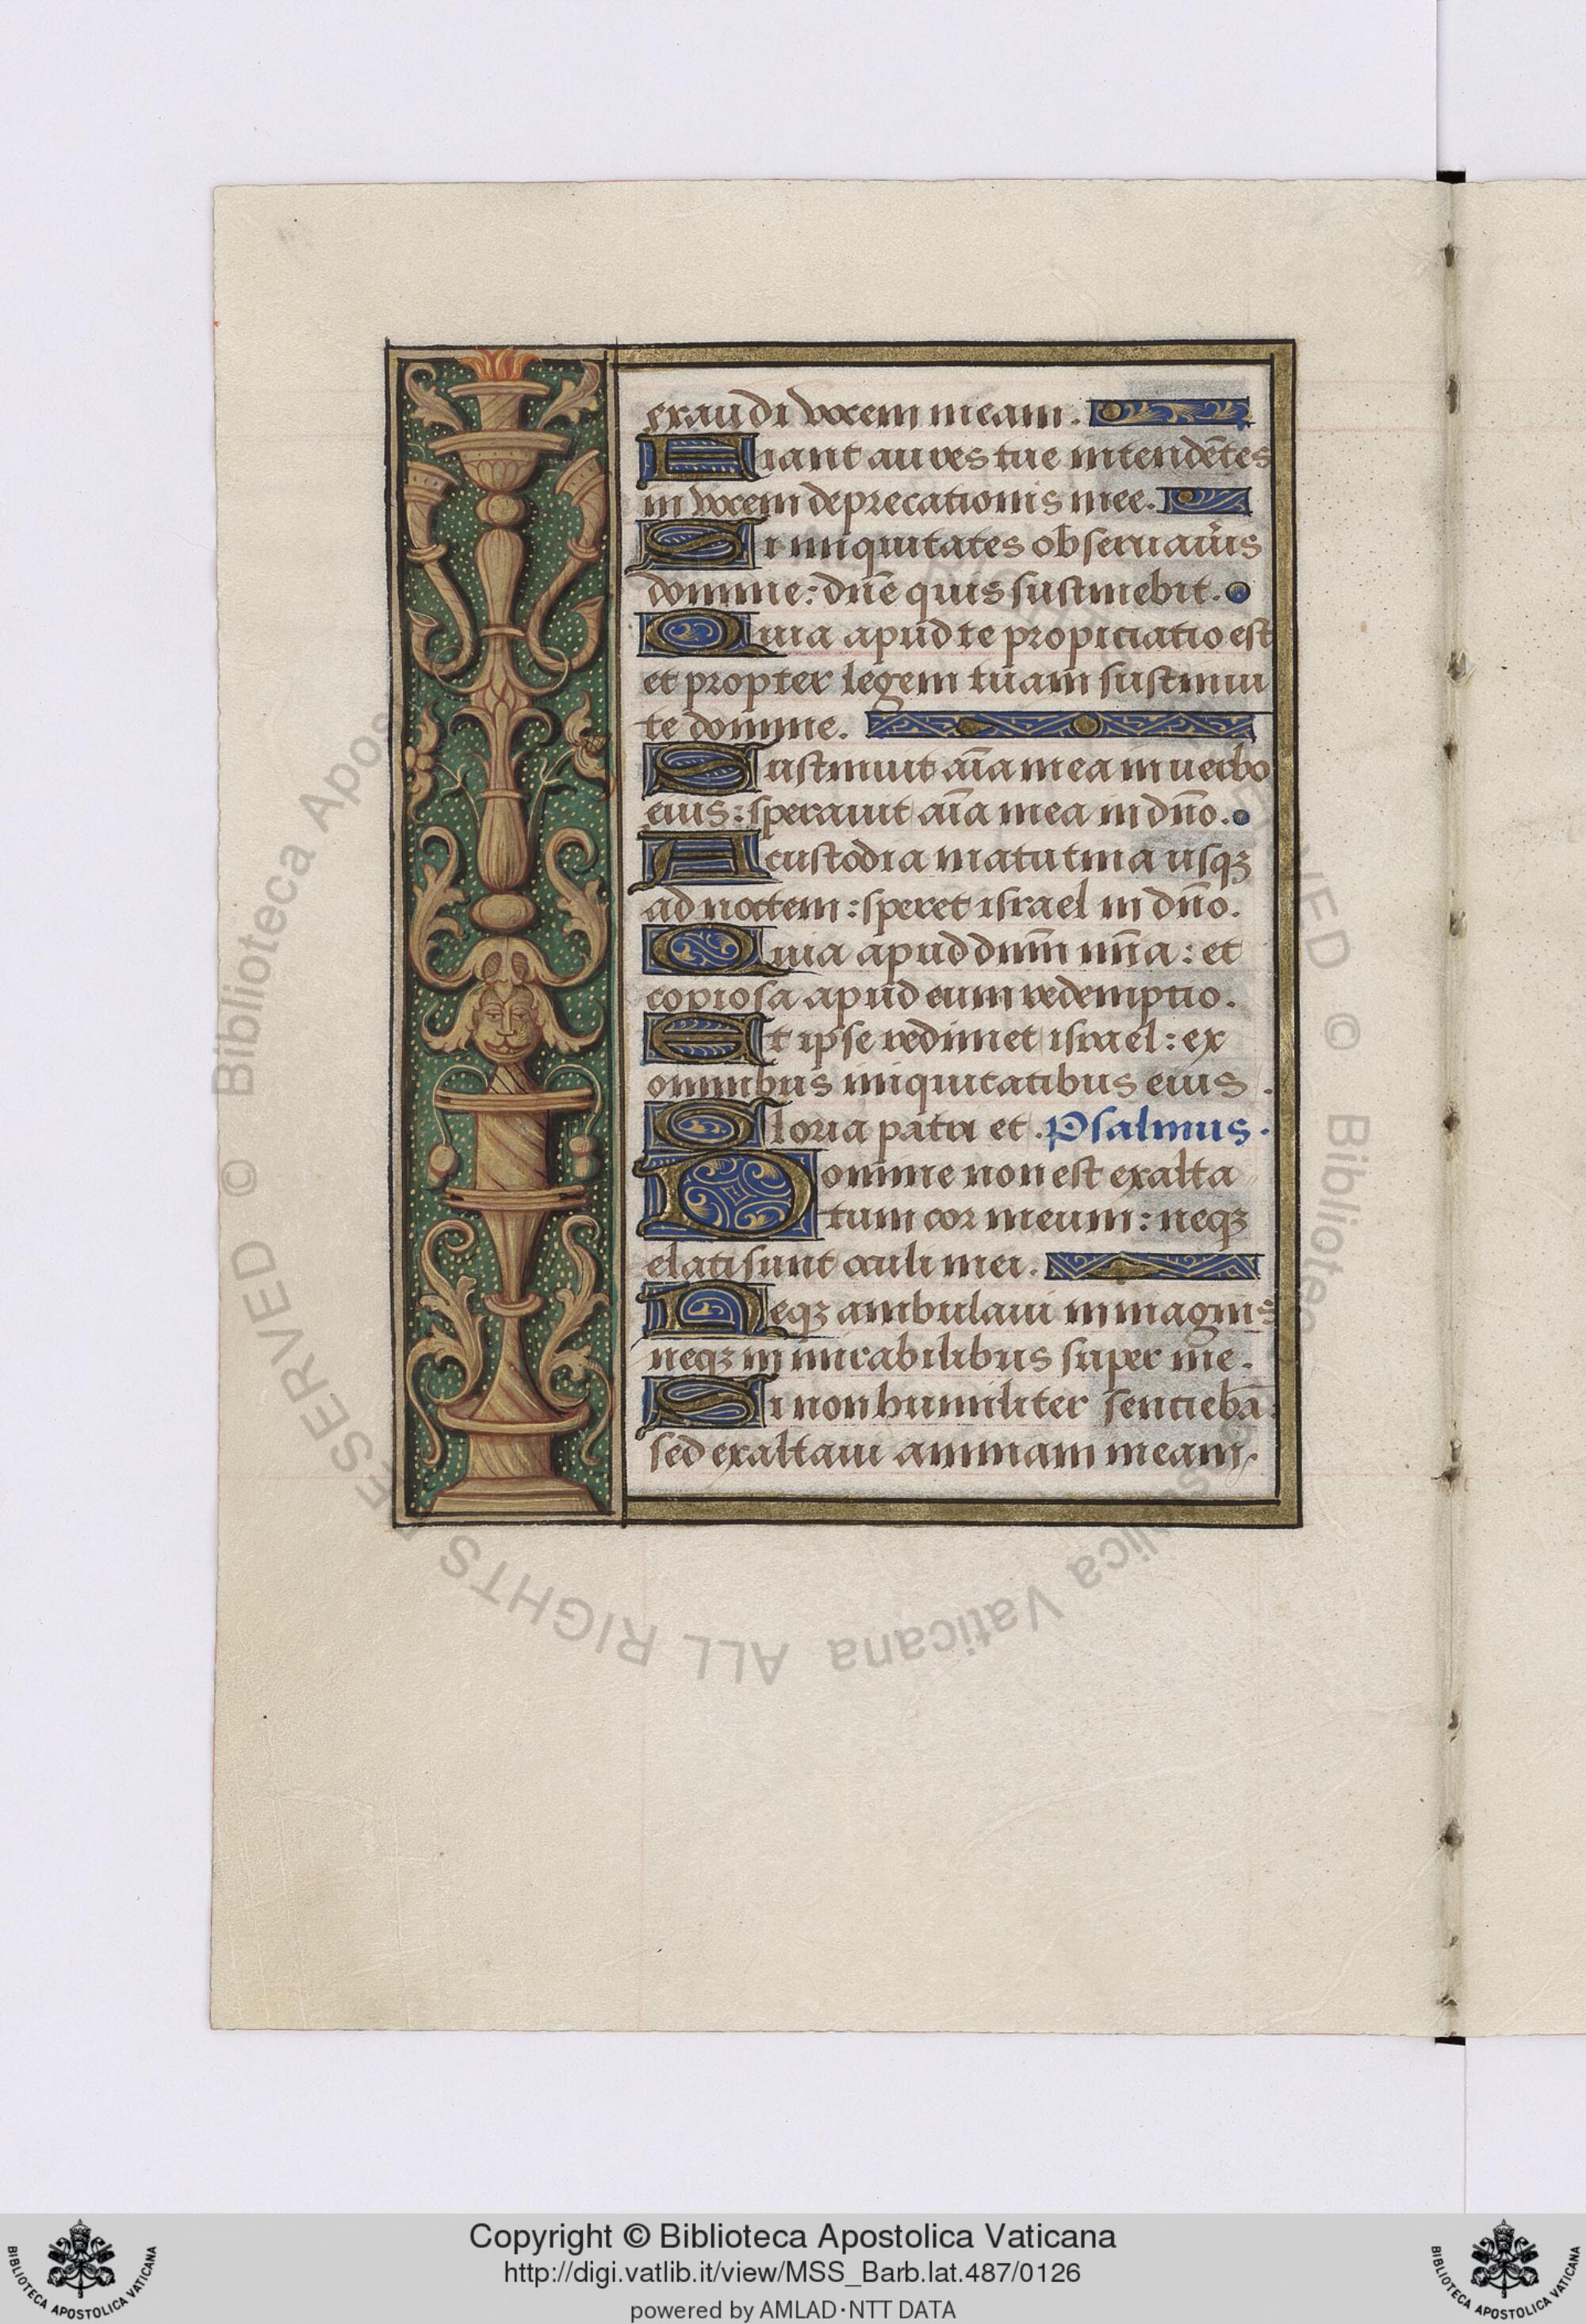 exaudi vocem meam.
Fiant aures tue intendētes
in vocem deprecationis mee.
Si iniquitates obseruaũis
domine: dñe quis sustinebit.
Quia apud te propiciatio est
et propter legem tuam sustinui
te domine.
Sustinuit aĩa mea in uerbo
eius: sperauit aĩa mea in dño.
A custodia matutina usqꝫ
ad noctem: speret israel in dño.
Quia apud dñm mĩa: et
copiosa apud eum redemptio.
Et ipse redimet israel: ex
omnibus iniquitatibus eius.
Gloria patri et. Psalmus.
Domine non est exalta
tum cor meum: neqꝫ
elati sunt oculi mei.
Neqꝫ ambulaui in magnis
neqꝫ in mirabilibus super me.
Si non humiliter sentiebã:
sed exaltaui animam meam.
Biblioteca Apostolica Vaticana ALL RIGHTS RESERVED © Biblioteca Apos
Copyright © Biblioteca Apostolica Vaticana
http://digi.vatlib.it/view/MSS_Barb.lat.487/0126
powered by AMLAD·NTT DATA
BIBLIOTECA APOSTOLICA VATICANA
BIBLIOTECA APOSTOLICA VATICANA